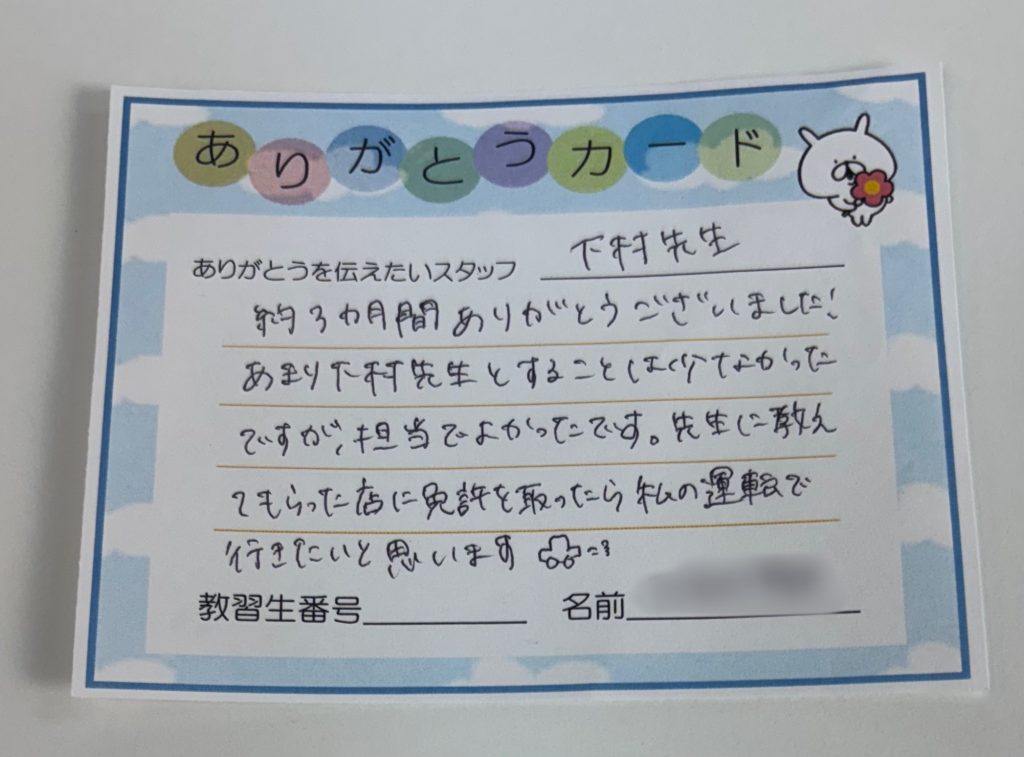 ありがとうカード
ありがとうを伝えたいスタッフ 下村先生
約3カ月間ありがとうございました!
あまり下村先生とすることは少なかった
ですが、担当でよかったです。先生に教え
てもらった店に免許を取ったら私の運転で
行きたいと思います
教習生番号
名前